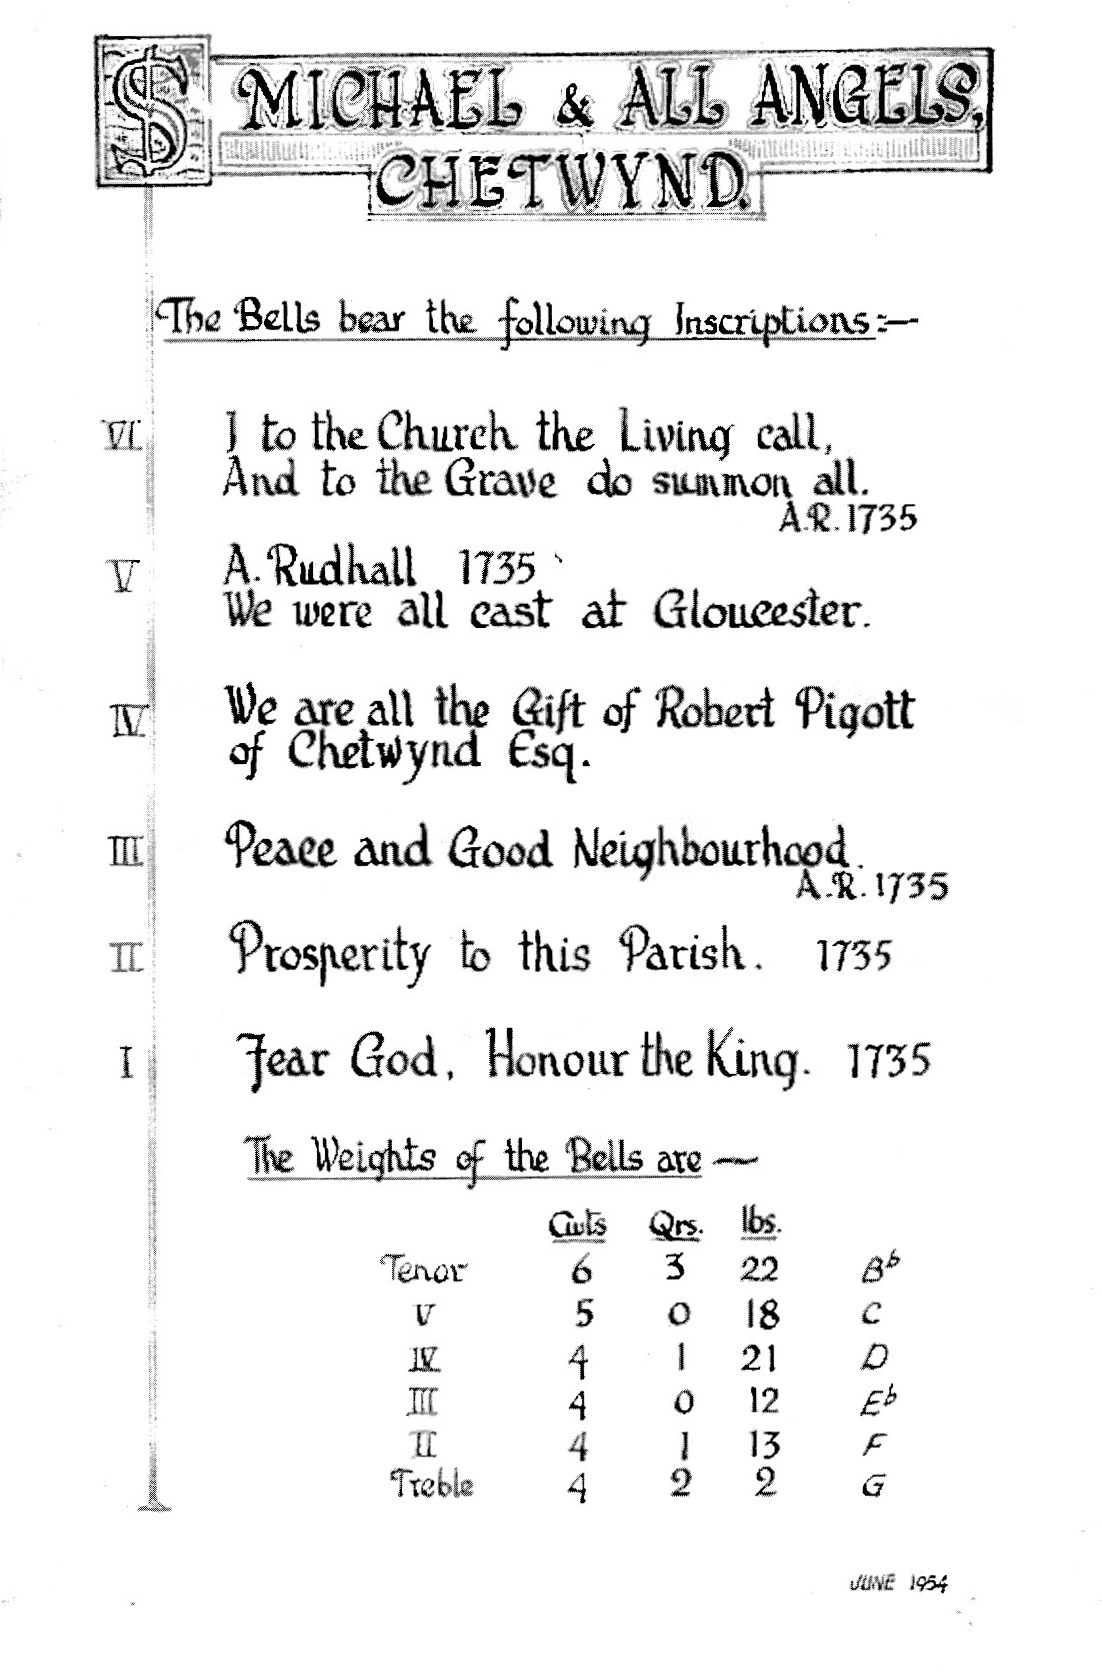 S MICHAEL & ALL ANGELS,
CHETWYND.
The Bells bear the following Inscriptions:—
VI I to the Church the Living call,
And to the Grave do summon all.
A.R. 1735
V A. Rudhall 1735
We were all cast at Gloucester.
IV We are all the Gift of Robert Pigott
of Chetwynd Esq.
III Peace and Good Neighbourhood.
A.R. 1735
II Prosperity to this Parish. 1735
I Fear God, Honour the King. 1735
The Weights of the Bells are —
Cwts Qrs. lbs.
Tenor 6 3 22 B♭
V 5 0 18 C
IV 4 1 21 D
III 4 0 12 E♭
II 4 1 13 F
Treble 4 2 2 G
JUNE 1954